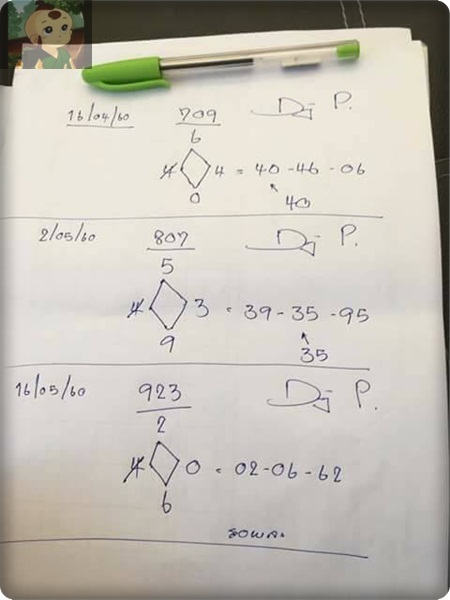 16/04/60 709 Dj P.
6
4 4 = 40 - 46 - 06
0 40
2/05/60 807 Dj P.
5
4 3 = 39 - 35 - 95
9 35
16/05/60 923 Dj P.
2
4 0 = 02 - 06 - 62
6
รอผล